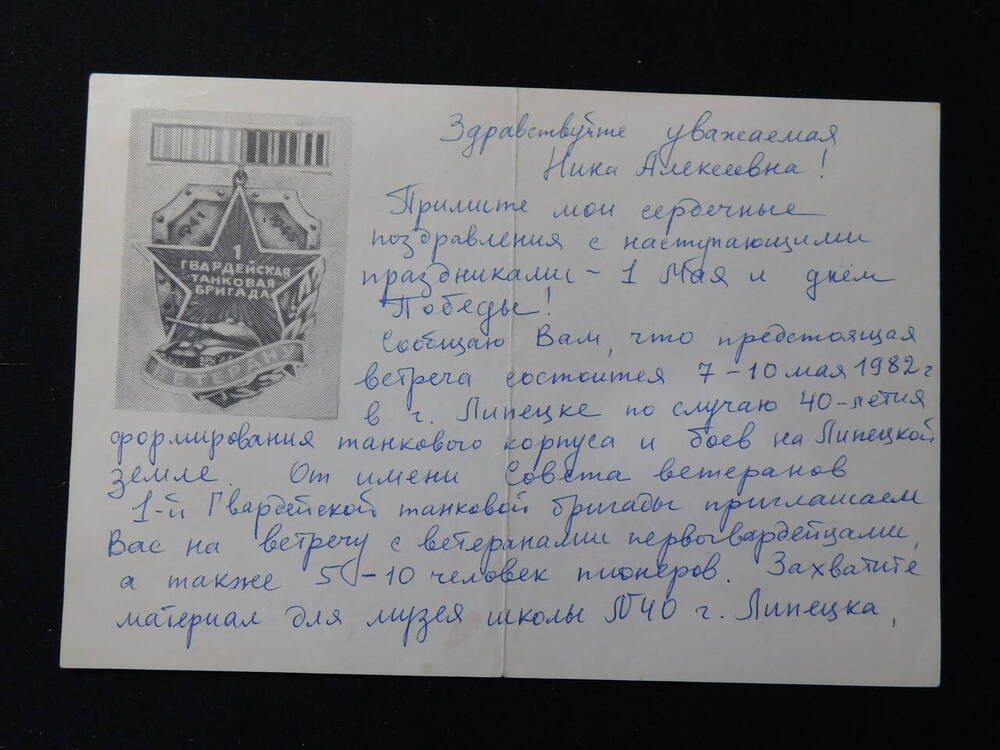 1941 1945
1
ГВАРДЕЙСКАЯ
ТАНКОВАЯ
БРИГАДА
ВЕТЕРАНУ
Здравствуйте уважаемая
Ника Алексеевна!
Примите мои сердечные
поздравления с наступающими
праздниками - 1 Мая и днём
Победы!
Сообщаю Вам, что предстоящая
встреча состоится 7-10 мая 1982 г
в г. Липецке по случаю 40-летия
формирования танкового корпуса и боев на Липецкой
земле. От имени Совета ветеранов
1-й Гвардейской танковой бригады приглашаем
Вас на встречу с ветеранами первогвардейцами,
а также 5-10 человек пионеров. Захватите
материал для музея школы №40 г. Липецка,